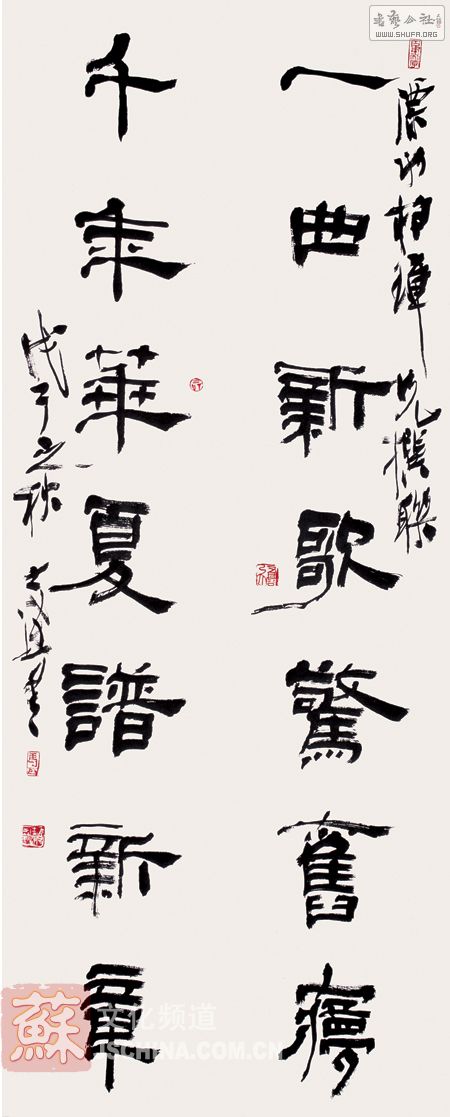 书艺公社
WWW.SHUFA.ORG
撰聯
一曲新歌驚舊夢
千年華夏譜新章
戊子之秋
書
蘇
文化频道
JSCHINA.COM.CN